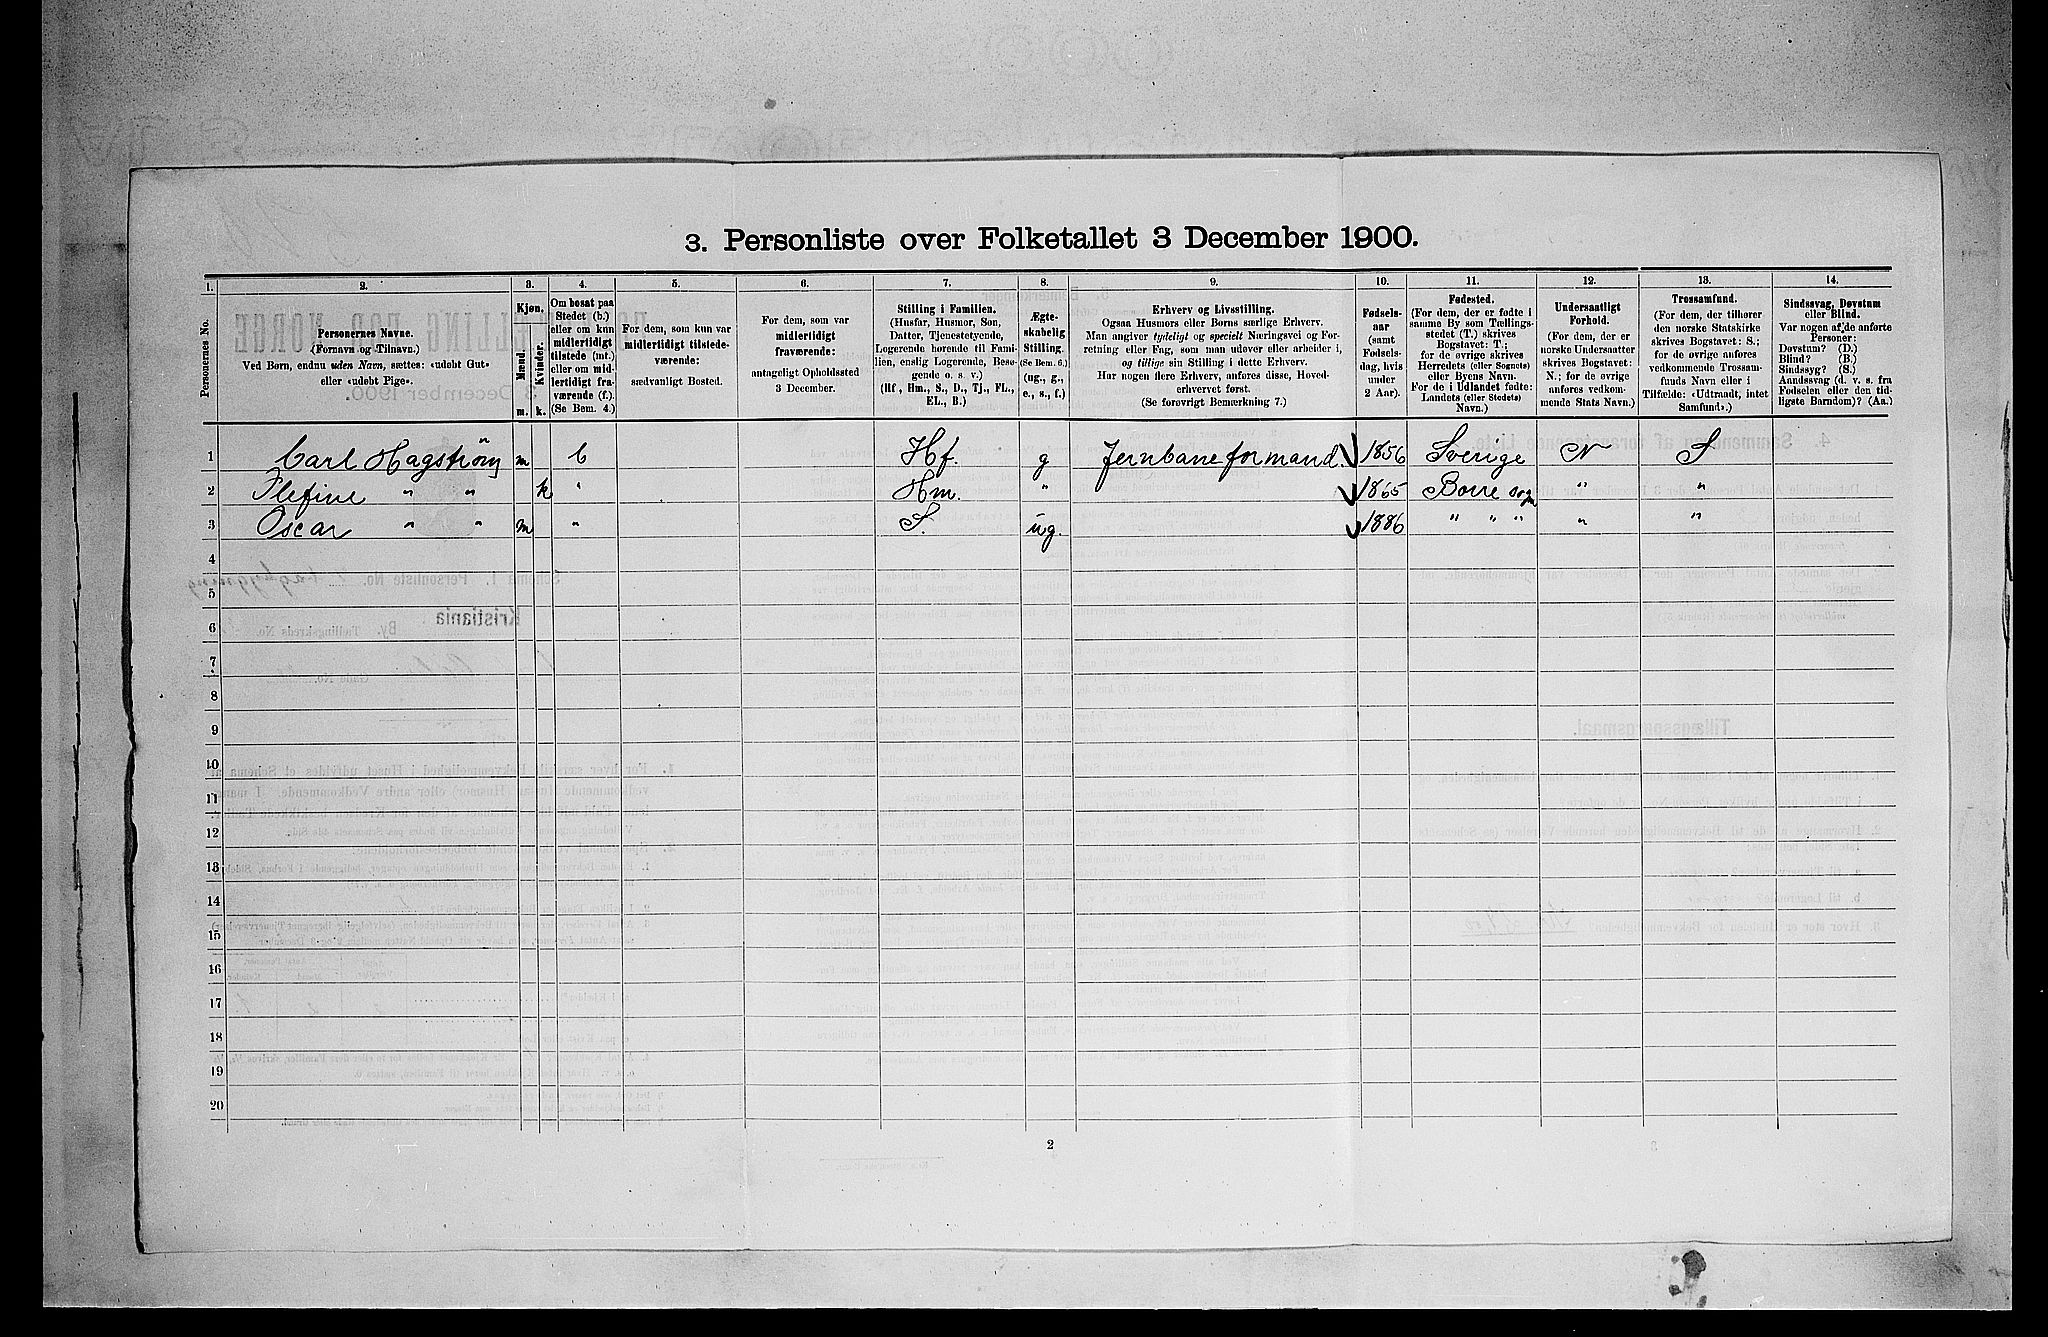 3. Personliste over Folketallet 3 December 1900.
1.
Personernes No.
2.
Personernes Navne.
(Fornavn og Tilnavn.)
Ved Børn, endnu uden Navn, sættes: «udøbt Gut»
eller «udøbt Pige».
3.
Kjøn.
Mænd.
Kvinder.
m.
k.
4.
Om bosat paa
Stedet (b.)
eller om kun
midlertidigt
tilstede (mt.)
eller om mid-
lertidigt fra-
værende (f.).
(Se Bem. 4.)
5.
For dem, som kun var
midlertidigt tilstede-
værende:
sædvanligt Bosted.
6.
For dem, som var
midlertidigt
fraværende:
antageligt Opholdssted
3 December.
7.
Stilling i Familien.
(Husfar, Husmor, Søn,
Datter, Tjenestetyende,
Logerende hørende til Fami-
lien, enslig Logerende, Besø-
gende o. s. v.)
(Hf, Hm., S., D., Tj., FL.,
EL., B.)
8.
Ægte-
skabelig
Stilling.
(Se Bem. 6.)
(ug., g.,
e., s., f.)
9.
Erhverv og Livsstilling.
Ogsaa Husmors eller Børns særlige Erhverv.
Man angiver tydeligt og specielt Næringsvei og For-
retning eller Fag, som man udøver eller arbeider i,
og tillige sin Stilling i dette Erhverv.
Har nogen flere Erhverv, anføres disse, Hoved-
erhvervet først.
(Se forøvrigt Bemærkning 7.)
10.
Fødsels-
aar
(samt
Fødsels-
dag, hvis
under
2 Aar).
11.
Fødested.
(For dem, der er fødte i
samme By som Tællings-
stedet (T.) skrives
Bogstavet: T.;
for de øvrige skrives
Herredets (eller Sognets)
eller Byens Navn.
For de i Udlandet fødte:
Landets (eller Stedets)
Navn.)
12.
Undersaatligt
Forhold.
(For dem, der er
norske Undersaatter
skrives Bogstavet:
N.; for de øvrige
anføres vedkom-
mende Stats Navn.)
13.
Trossamfund.
(For dem, der tilhører
den norske Statskirke
skrives Bogstavet: S.;
for de øvrige anføres
vedkommende Trossam-
funds Navn eller i
Tilfælde: «Udtraadt, intet
Samfund».)
14.
Sindssvag, Døvstum
eller Blind.
Var nogen af de anførte
Personer:
Døvstum? (D.)
Blind? (B.)
Sindssyg? (S.)
Aandssvag (d. v. s. fra
Fødselen eller den tid-
ligste Barndom)? (Aa.)
1 Carl Hagström m b Hf. g Jernbaneformand. 1856 Sverige N S
2 Elefine " " k " Hm. " 1865 Borre sogn " "
3 Oscar " " m " S. ug. 1886 " " " " "
4
5
6
7
8
9
10
11
12
13
14
15
16
17
18
19
20
2